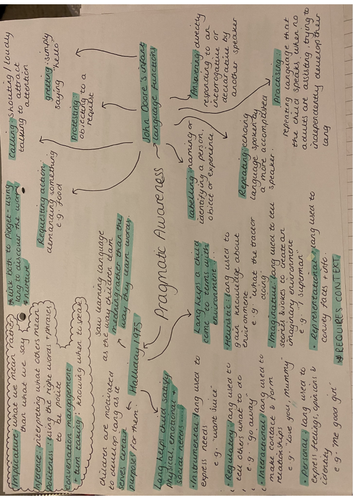 Pragmatic Awareness
John Dore's infant
language functions
Answering directly
responding to an
interrogative or
declarative by
another speaker
Practising
repeating language that
the child speaks when no
adults are present trying to
independently develop their
lang
Labelling naming or
identifying a person,
object or experience
Repeating echoing
language spoken by
a more accomplished
speaker.
Protesting
objecting to a
request
Greeting - simply
saying 'hello'
Calling shouting / loudly
calling to attract
attention
Requesting action
demanding something
e.g. food
* Link both to Piaget - using
lang to discover the world
around *
Implicature what we mean rather
than what we say
Inference interpreting what others mean
Politeness using the right words + phrases
to be polite
Conversational management
+ turn taking - knowing when to speak
Halliday 1975
saw learning language
as the way children learn
meaning rather than the
way they learn words
children are motivated
to develop lang as it
serves certain
purposes for them
Lang helps child satisfy
physical, emotional +
social needs
• Instrumental lang used to
express needs
e.g. 'want juice'
• Regulatory lang used to
tell others what to do
e.g. 'go away'
• Interactional lang used to
make contact & form
relationships
e.g. 'Love you, mummy'
• Personal lang used to
express feelings, opinions &
identity
e.g. 'Me good girl'
Lang helps child
come to terms with
environment
• Heuristic lang used to
gain knowledge about
environment
e.g. 'What the tractor
doing'
• Imaginative lang used to tell
stories & jokes and to create an
imaginary environment
e.g. 'I superman'
• Representational lang used to
convey facts + info
* REQUIRES CONTEXT *